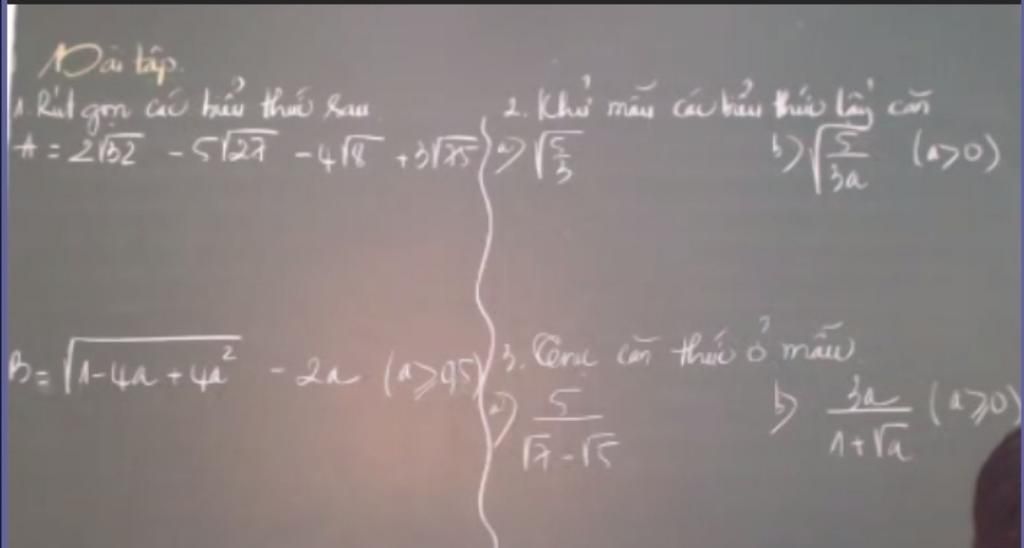 Bài tập
1. Rút gọn các biểu thức sau
A = 2√32 - 5√27 - 4√8 + 3√75
B = √(1 - 4a + 4a²) - 2a (a ≥ 0,5)
2. Khử mẫu các biểu thức lấy căn
a) √(5/3) b) √(5/3a) (a > 0)
3. Trục căn thức ở mẫu
a) 5/(√7 - √5) b) 3a/(1 + √a) (a ≥ 0)